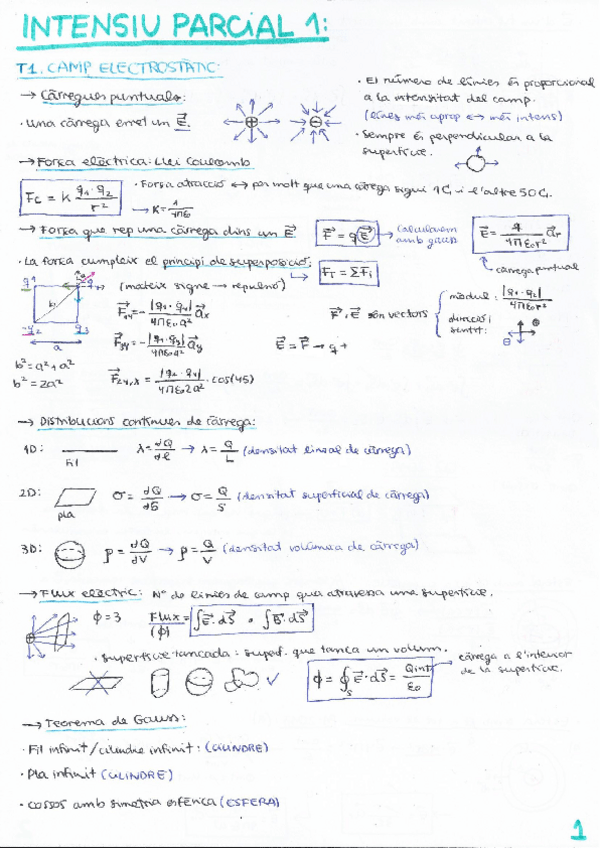 INTENSIU PARCIAL 1:
T1. CAMP ELECTROSTÀTIC:
→ Càrregues puntuals:
· Una càrrega emet un E⃗.
· El número de línies és proporcional
a la intensitat del camp.
(línies més aprop ↔ més intens)
· Sempre és perpendicular a la
superfície.
→ Força elèctrica: Llei Coulomb
Fc = K q1·q2 / r²
· Força atracció ↔ per molt que una càrega sigui 1C i l'altre 50C.
→ K = 1/4πε
→ Força que rep una càrrega dins un E⃗
F⃗ = qE⃗
Calcularem
amb gauss
E⃗ = q / 4πε0r² a⃗r
càrrega puntual
· La força cumpleix el principi de superposició:
FT = ΣFi
(mateix signe → repulsió)
q1
q2
q3
b
a
F⃗ = - |q1·q4| / 4πε0a² a⃗x
F⃗ = - |q3·q4| / 4πε0a² a⃗y
F⃗24,x = |q2·q4| / 4πε02a² · cos(45)
F⃗, E⃗ són vectors
mòdul: |q1·q2| / 4πε0r²
direcció i
sentit:
E⃗ = F⃗ → q+
b² = a² + a²
b² = 2a²
→ Distribucions contínues de càrrega:
1D: fil λ = dQ/dl → λ = Q/L (densitat lineal de càrrega)
2D: pla σ = dQ/dS → σ = Q/S (densitat superficial de càrrega)
3D: ρ = dQ/dV → ρ = Q/V (densitat volúmica de càrrega)
→ Flux elèctric: Nº de línies de camp que atravessa una superfície.
ϕ = 3 Flux (ϕ) = ∫E⃗·dS⃗ o ∫B⃗·dS⃗
· Superfície tancada: superf. que tanca un volum.
ϕ = ∮S E⃗·dS⃗ = Qint/ε0
càrrega a l'interior
de la superfície.
→ Teorema de Gauss:
· Fil infinit/cilindre infinit: (CILINDRE)
· Pla infinit (CILINDRE)
· Cossos amb simetria esfèrica (ESFERA)
1